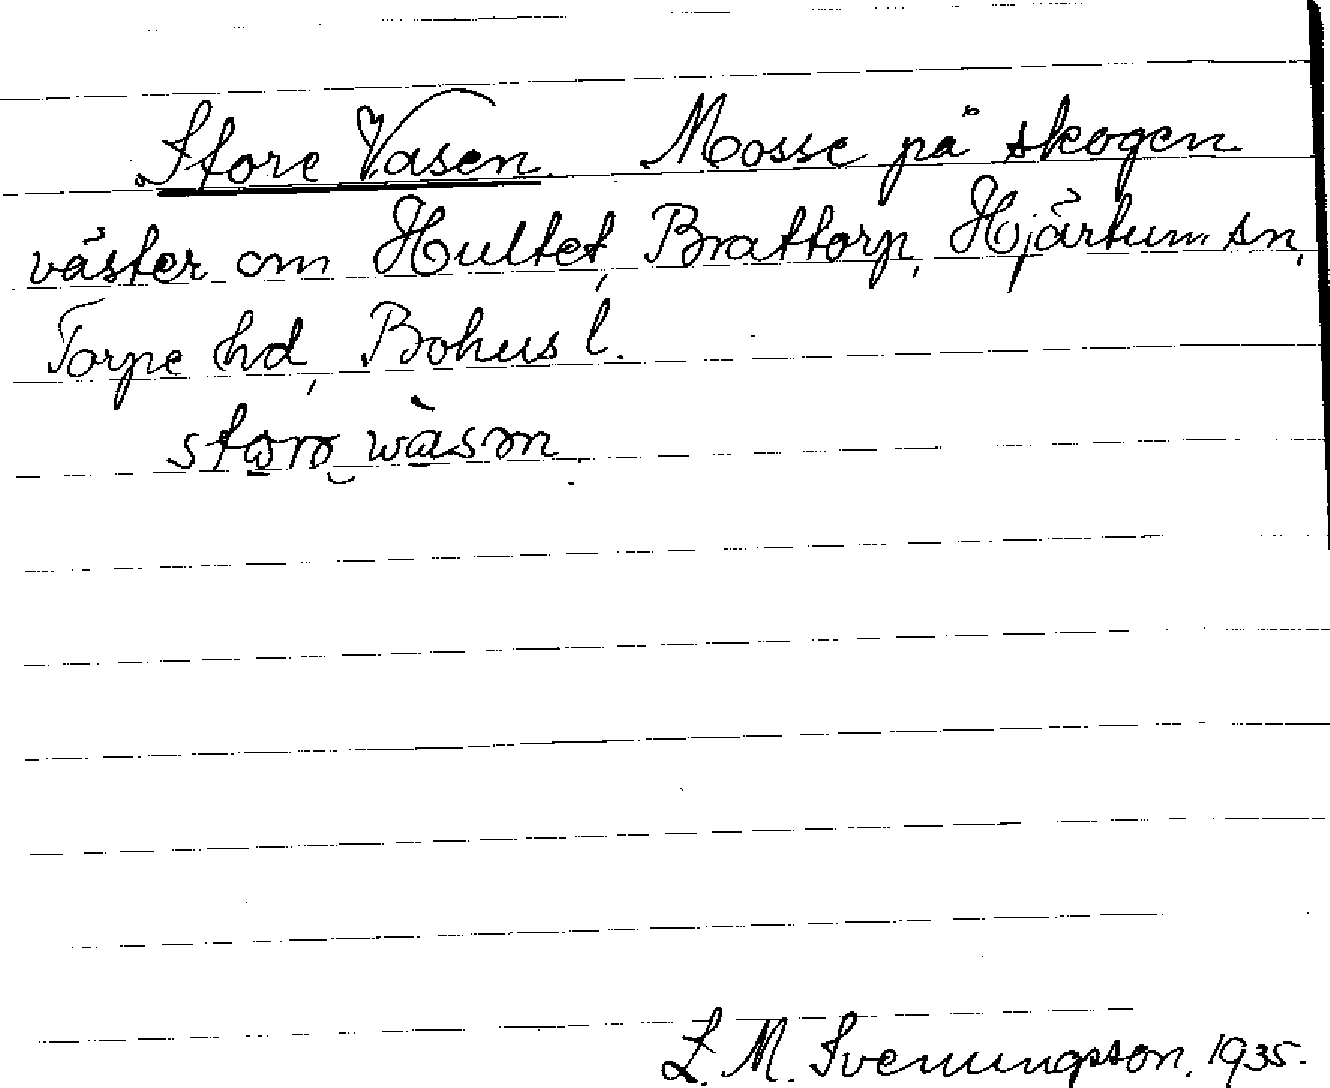 Store Vasen. Mosse på skogen
väster om Hultet, Brattorp, Hjärtum sn,
Torpe hd, Bohus l.
L. M. Svenungsson. 1935.